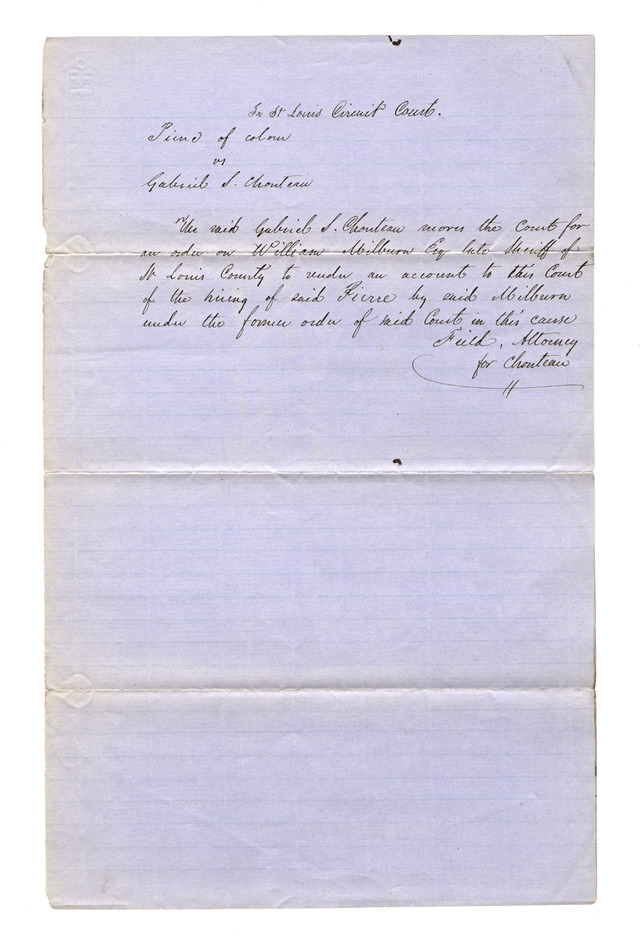 In St Louis Circuit Court.
Pierre of colour
vs
Gabriel S. Chouteau
The said Gabriel S. Chouteau moves the Court for
an order on William Milburn Esq late Sheriff of
St Louis County to render an account to this Court
of the hiring of said Pierre by said Milburn
under the former order of said Court in this cause
Field, Attorney
for Chouteau